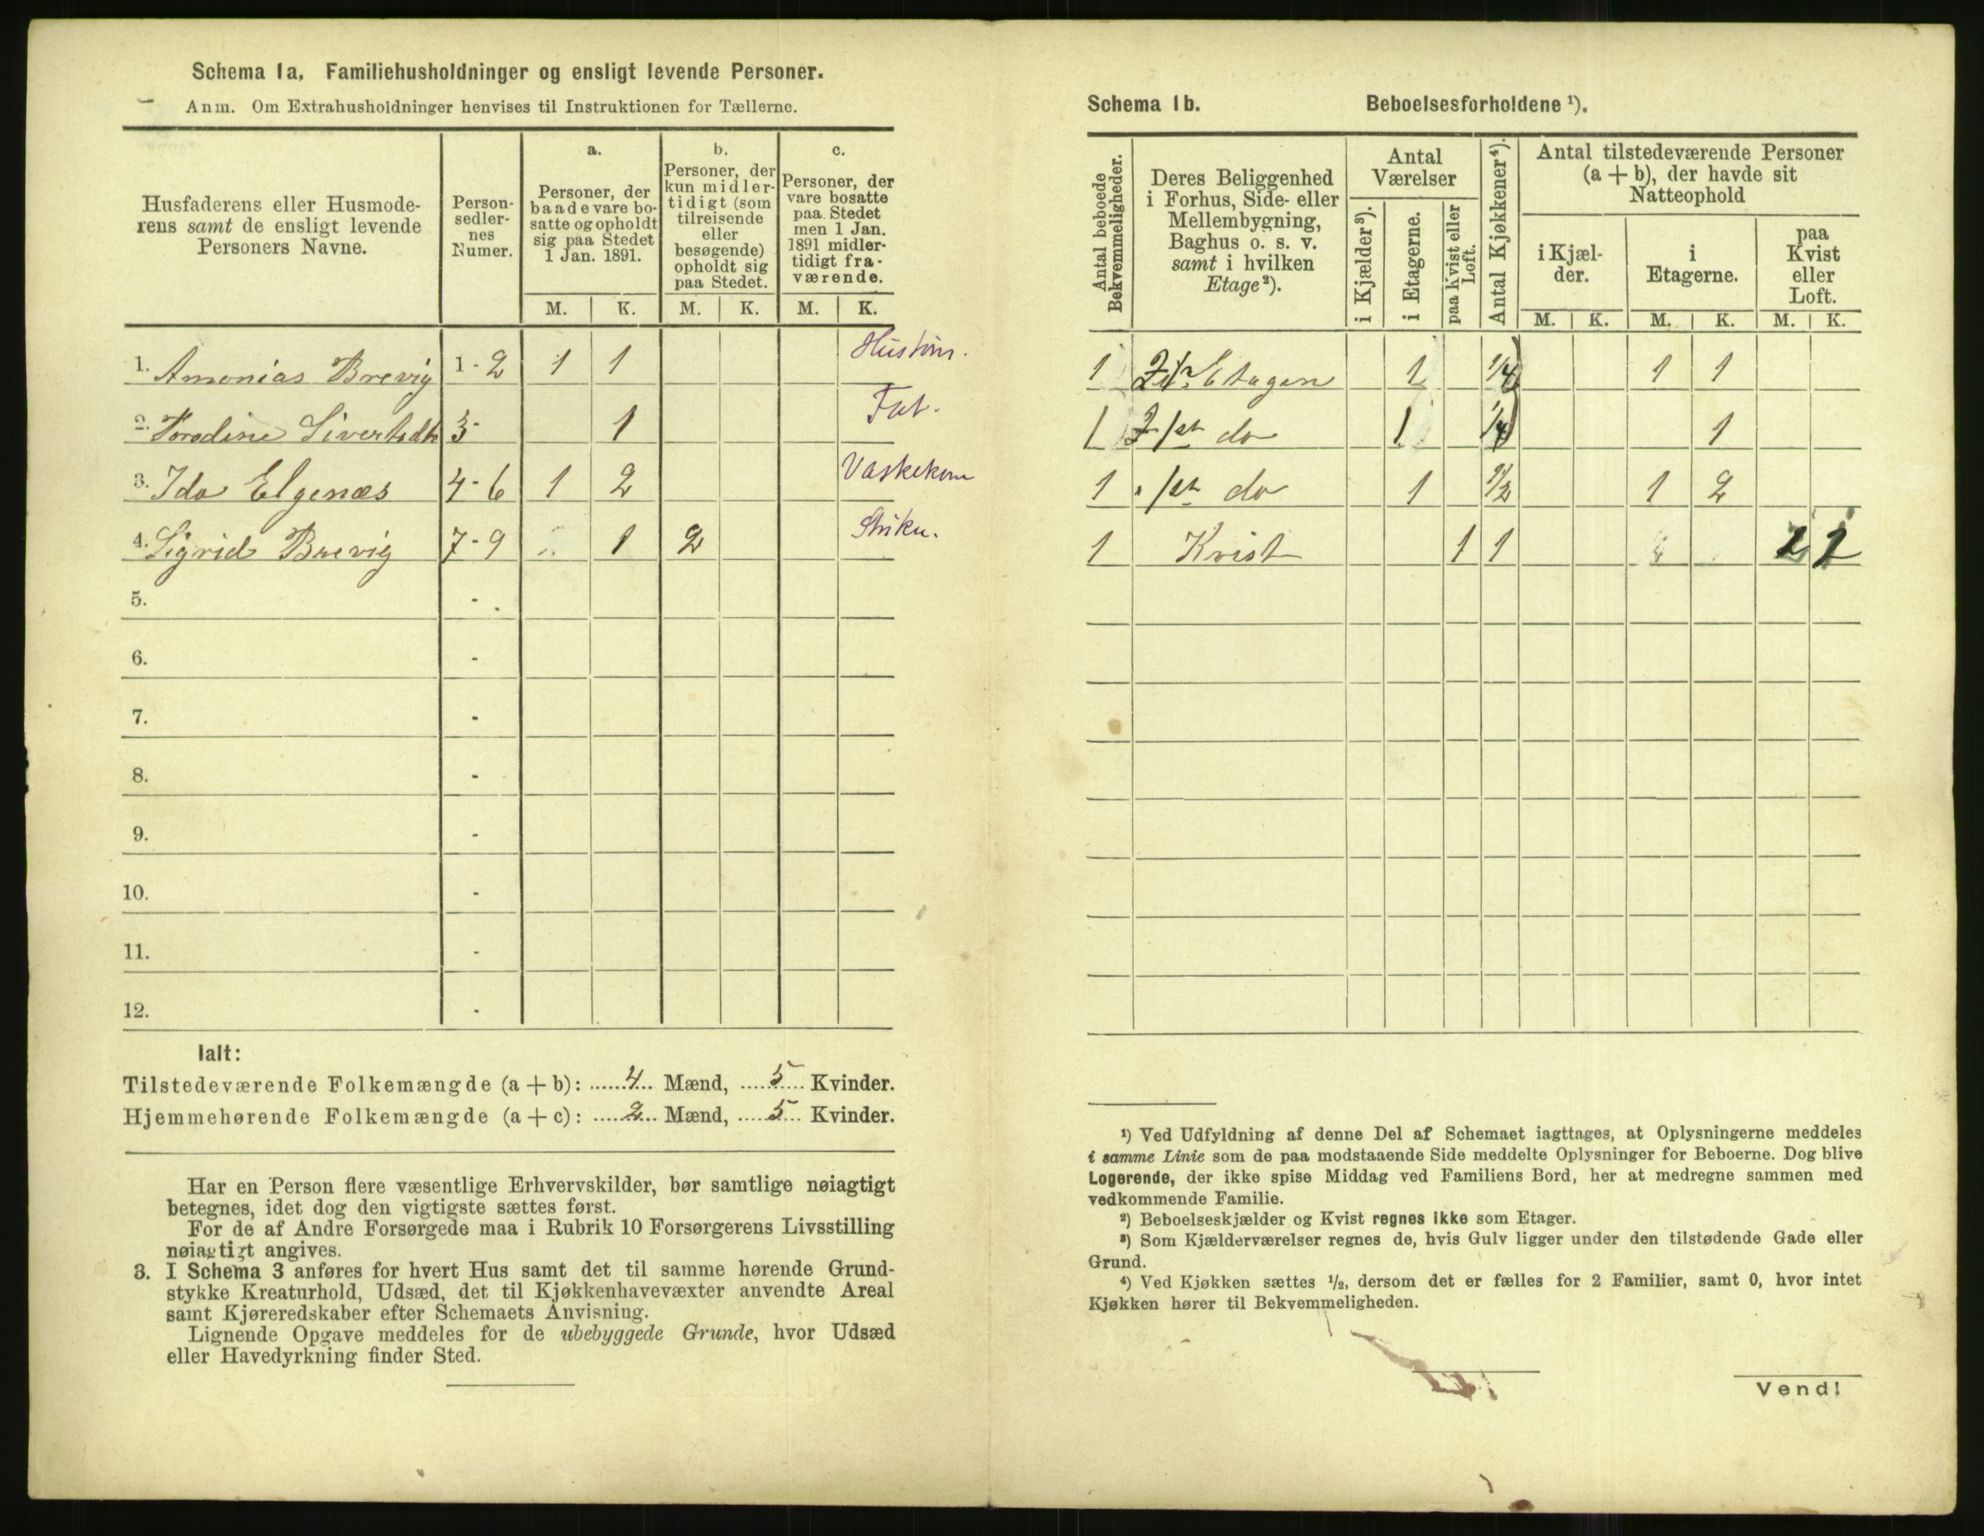 Schema 1a. Familiehusholdninger og ensligt levende Personer.
Anm. Om Extrahusholdninger henvises til Instruktionen for Tællerne.
Husfaderens eller Husmoderens samt de ensligt levende Personers Navne.
Person-sedlernes Numer.
a.
Personer, der baade vare bosatte og opholdt sig paa Stedet 1 Jan. 1891.
b.
Personer, der kun midlertidigt (som tilreisende eller besøgende) opholdt sig paa Stedet.
c.
Personer, der vare bosatte paa Stedet men 1 Jan. 1891 midlertidigt fraværende.
M. K. M. K. M. K.
1. Amonias Brevig 1-2 1 1
2. Torodine Sivertsdtr 3 - 1 Fat.
3. Ida Elgenæs 4-6 1 2 Vaskekone
4. Sigrid Brevig 7-9 1 2
5. -
6. -
7. -
8. -
9. -
10. -
11. -
12. -
Ialt:
Tilstedeværende Folkemængde (a + b): 4 Mænd, 5 Kvinder.
Hjemmehørende Folkemængde (a + c): 2 Mænd, 5 Kvinder.
Har en Person flere væsentlige Erhvervskilder, bør samtlige nøiagtigt
betegnes, idet dog den vigtigste sættes først.
For de af Andre Forsørgede maa i Rubrik 10 Forsørgerens Livsstilling
nøiagtigt angives.
3. I Schema 3 anføres for hvert Hus samt det til samme hørende Grund-
stykke Kreaturhold, Udsæd, det til Kjøkkenhavevæxter anvendte Areal
samt Kjøreredskaber efter Schemaets Anvisning.
Lignende Opgave meddeles for de ubebyggede Grunde, hvor Udsæd
eller Havedyrkning finder Sted.
Schema 1b. Beboelsesforholdene ¹).
Antal beboede Bekvemmeligheder.
Deres Beliggenhed i Forhus, Side- eller Mellembygning, Baghus o. s. v. samt i hvilken Etage²).
Antal Værelser
i Kjælder³).
i Etagerne.
paa Kvist eller Loft.
Antal Kjøkkener⁴).
Antal tilstedeværende Personer (a + b), der havde sit Natteophold
i Kjælder.
i Etagerne.
paa Kvist eller Loft.
M. K. M. K. M. K.
1 Etagen 1 1/4 1 1
1 1st do 1 1/4 1
1 1st do 1 1/2 1 2
1 Kvist 1 1 2 1
¹) Ved Udfyldning af denne Del af Schemaet iagttages, at Oplysningerne meddeles
i samme Linie som de paa modstaaende Side meddelte Oplysninger for Beboerne. Dog blive
Logerende, der ikke spise Middag ved Familiens Bord, her at medregne sammen med
vedkommende Familie.
²) Beboelseskjælder og Kvist regnes ikke som Etager.
³) Som Kjælderværelser regnes de, hvis Gulv ligger under den tilstødende Gade eller
Grund.
⁴) Ved Kjøkken sættes ½, dersom det er fælles for 2 Familier, samt 0, hvor intet
Kjøkken hører til Bekvemmeligheden.
Vend!